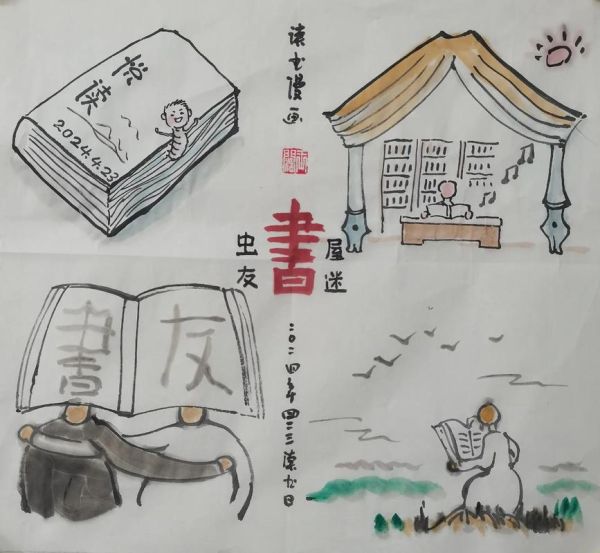 悦读
2024.4.23
读书漫画
書
虫 屋
友 迷
書友
二〇二四年四二三读书日